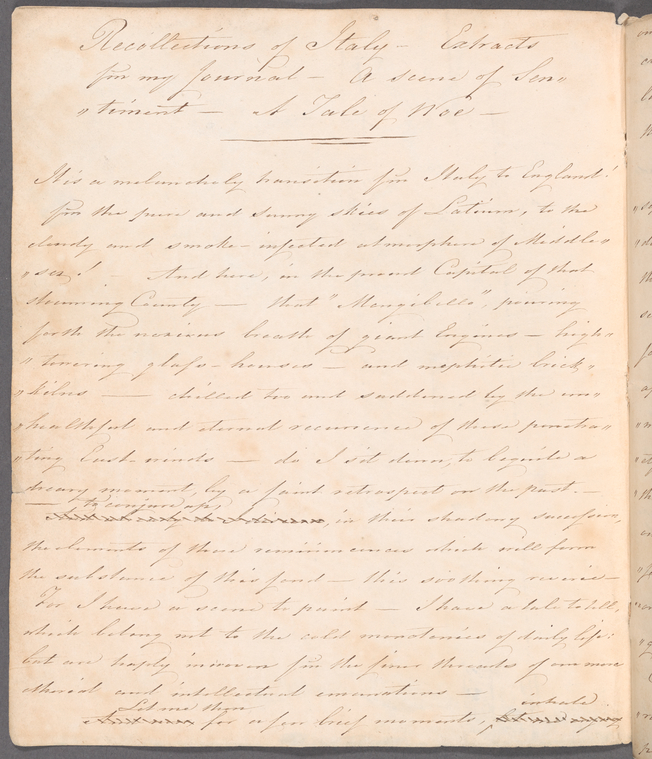 Recollections of Italy – Extracts
fm my Journal – A scene of Sen„
„timent – A Tale of Woe –
It is a melancholy transition fm Italy to England!
fm the pure and sunny skies of Latium, to the
cloudy and smoke-infected atmosphere of Middle„
„sex! – And here, in the proud Capital of that
steaming County – that "Mongibello", pouring
forth the noxious breath of giant Engines – high„
„towering glass-houses – and mephitic brick„
„kilns – chilled too and saddened by the un„
„healthful and eternal recurrence of these penetra„
„ting East-winds – do I sit down, to beguile a
dreary moment by a faint retrospect on the past. –
– to conjure up,
in their shadowy succession,
the elements of those reminiscences which will form
the substance of this fond – this soothing reverie –
For I have a scene to paint – I have a tale to tell,
which belong not to the cold monotonies of daily life:
but are haply inwoven fm the finer threads of our more
etherial and intellectual emanations –
Let me then inhale
for a few brief moments,